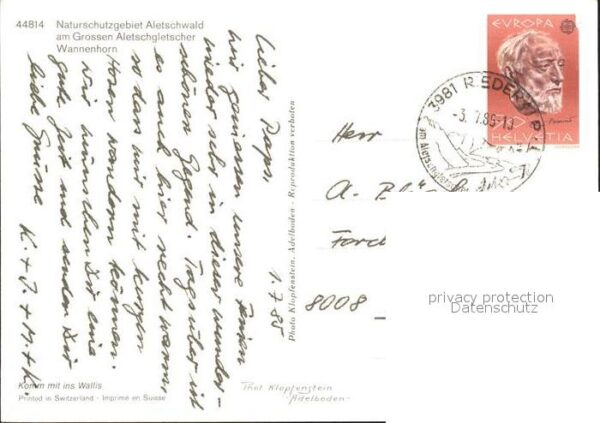 44814 Naturschutzgebiet Aletschwald
am Grossen Aletschgletscher
Wannenhorn
1.7.85
Lieber Papi
wir geniessen unsere Ferien
wieder sehr in dieser wunder-
schönen Gegend. Tagsüber ist
es auch hier recht warm
so dass wir mit kurzen
Hosen wandern können.
Wir wünschen Dir eine
gute Zeit und senden Dir
liebe Grüsse K. + J. + M. + K.
Komm mit ins Wallis
Printed in Switzerland - Imprimé en Suisse
Photo Klopfenstein, Adelboden - Reproduktion verboten
Phot. Klopfenstein
Adelboden
EVROPA
HELVETIA
3981 RIEDERALP
-3.7.85-19
Herr
A.
8008
privacy protection
Datenschutz